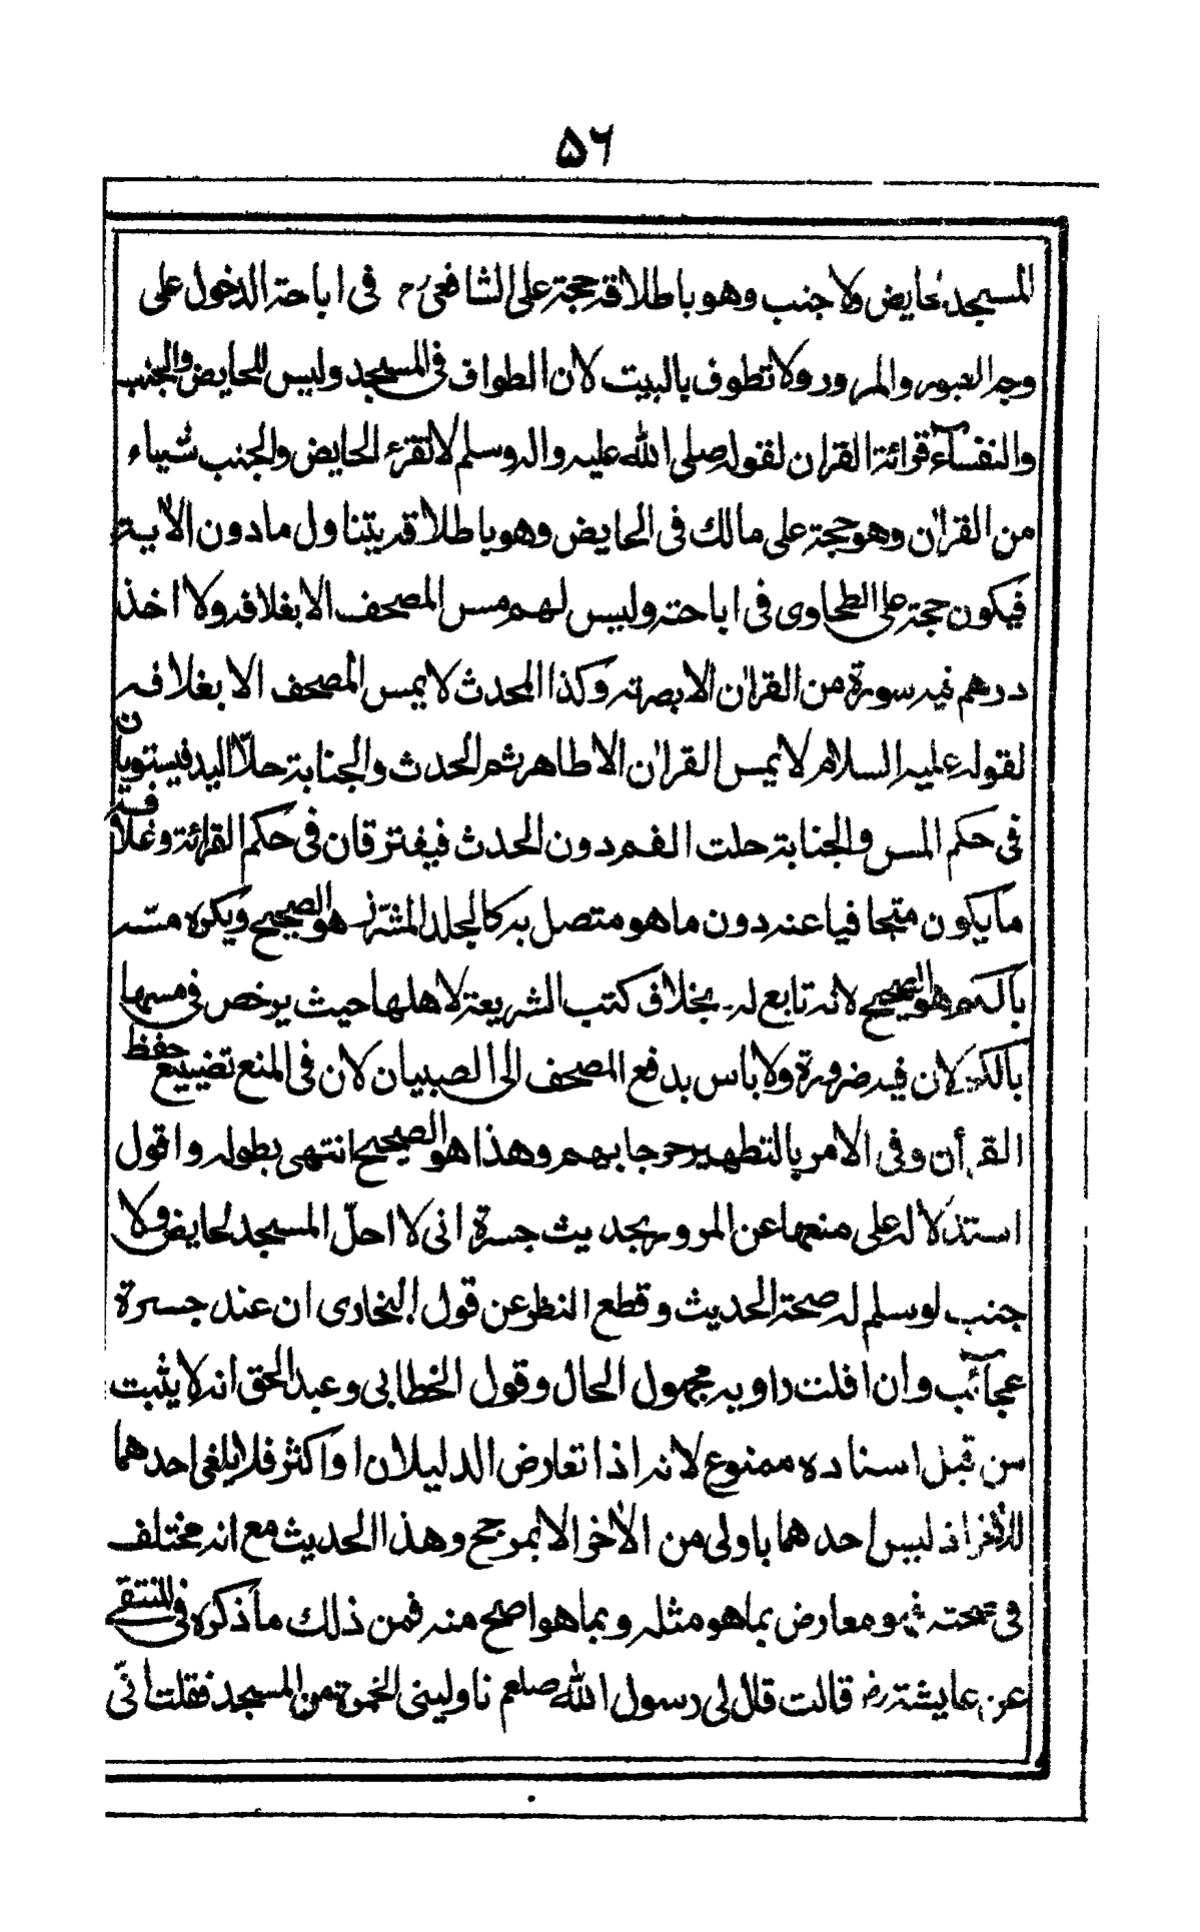 ۵۶
المسجد لحايض ولا جنب وهو باطلاقه حجة على الشافعى رح فى اباحة الدخول على
وجه العبور والمرور ولا تطوف بالبيت لان الطواف فى المسجد وليس للحايض والجنب
والنفسآء قرائة القران لقوله صلى الله عليه واله وسلم لا تقرء الحايض والجنب شياء
من القران وهو حجة على مالك فى الحايض وهو باطلاقه يتناول مادون الاية
فيكون حجة على الطحاوى فى اباحته وليس لهم مس المصحف الا بغلافه ولا اخذ
درهم فيه سورة من القران الا بصرته وكذا المحدث لا يمس المصحف الا بغلافه
لقوله عليه السلام لا يمس القران الا طاهر ثم الحدث والجنابة حلّا اليد فيستويان
فى حكم المس والجنابة حلت الفم دون الحدث فيفترقان فى حكم القرائة وغلافه
مايكون متجافيا عنه دون ماهو متصل به كالجلد المشرّز هو الصحيح ويكره مسّه
بالكم هو الصحيح لانه تابع له بخلاف كتب الشريعة لاهلها حيث يرخص فى مسها
بالكم لان فيه ضرورة ولا باس بدفع المصحف الى الصبيان لان فى المنع تضييع حفظ
القرأن وفى الامر بالتطهير حرجا بهم وهذا هو الصحيح انتهى بطوله واقول
استدلاله على منعها عن المرور بحديث جسرة انى لا احلّ المسجد لحايض ولا
جنب لو سلم له صحة الحديث وقطع النظر عن قول البخارى ان عند جسرة
عجآئب وان افلت راويه مجهول الحال وقول الخطابى وعبد الحق انه لا يثبت
من قبل اسناده ممنوع لانه اذا تعارض الدليلان او اكثر فلا يلغى احدهما
للأخر اذ ليس احدهما باولى من الأخر الا بمرجح وهذا الحديث مع انه مختلف
فى صحته فهو معارض بماهو مثله وبماهو اصح منه فمن ذلك ماذكره فى المنتقى
عن عايشة رض قالت قال لى رسول الله صلعم ناولينى الخمرة من المسجد فقلت انّى